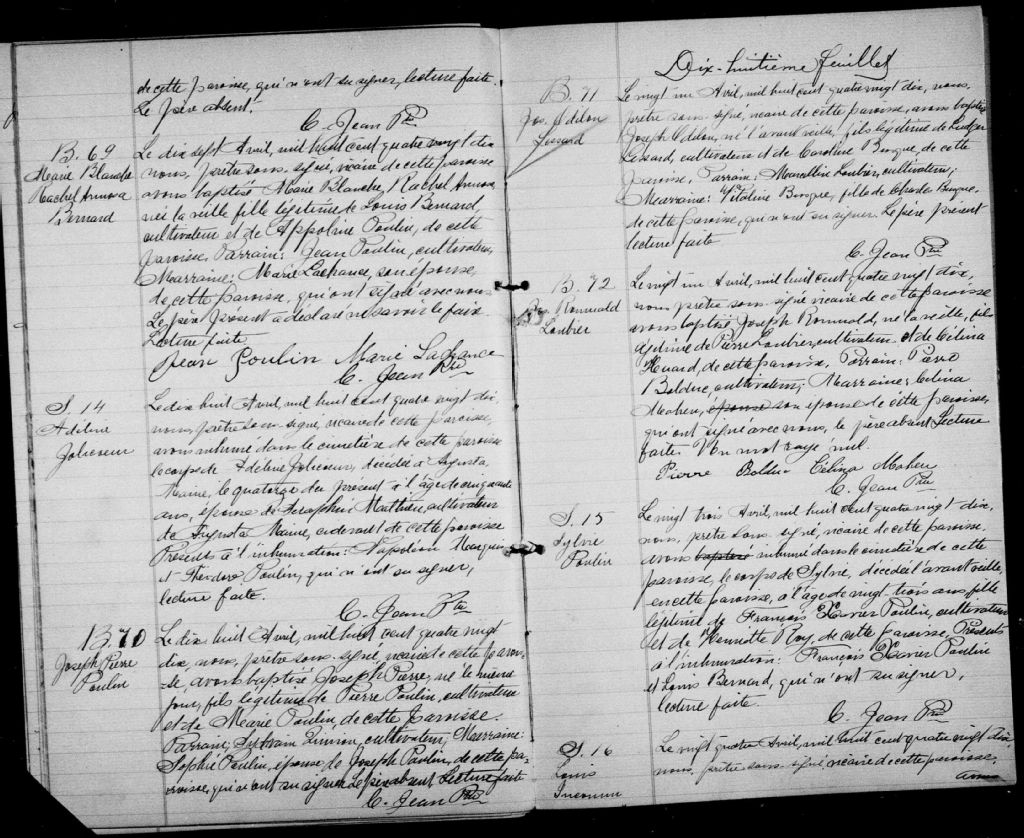 de cette paroisse, qui n'ont su signer, lecture faite.
Le père absent.
C. Jean Ptre
B. 69
Marie Blanche
Rachel
Bernard
Le dix sept Avril, mil huit cent quatre vingt dix
nous, prêtre sous-signé, vicaire de cette paroisse
avons baptisé Marie Blanche, Rachel
née la veille fille légitime de Louis Bernard,
cultivateur et de Appoline Poulin, de cette
paroisse. Parrain: Jean Poulin, cultivateur,
Marraine: Marie Lachance, son épouse,
de cette paroisse, qui ont signé avec nous.
Le père présent a déclaré ne savoir le faire.
Lecture faite.
Jean Poulin Marie Lachance
C. Jean Ptre
S. 14
Adeline
Jolicoeur
Le dix huit Avril, mil huit cent quatre vingt dix
nous, prêtre sous-signé, vicaire de cette paroisse,
avons inhumé dans le cimetière de cette paroisse
le corps de Adeline Jolicoeur, décédée à Augusta,
Maine, le quatorze du présent à l'âge de cinquante
ans, épouse de Seraphin Mathieu, cultivateur
de Augusta Maine, ci-devant de cette paroisse
Présents à l'inhumation: Napoléon
et Théodore Poulin, qui n'ont su signer,
lecture faite.
C. Jean Ptre
B. 70
Joseph Pierre
Poulin
Le dix huit Avril, mil huit cent quatre vingt
dix, nous, prêtre sous-signé, vicaire de cette parois-
se, avons baptisé Joseph Pierre, né le même
jour, fils légitime de Pierre Poulin, cultivateur
et de Marie Poulin, de cette paroisse.
Parrain, cultivateur; Marraine:
Sophie Poulin, épouse de Joseph Poulin, de cette pa-
roisse, qui n'ont su signer. Le père absent. Lecture faite
C. Jean Ptre
Dix-huitième feuillet
B. 71
Jos. Odilon
Lessard
Le vingt un Avril, mil huit cent quatre vingt dix, nous,
prêtre sous-signé, vicaire de cette paroisse, avons baptisé
Joseph Odilon, né l'avant veille, fils légitime de
Lessard, cultivateur et de Caroline Bisque, de cette
paroisse. Parrain: Marcellin Loubier, cultivateur;
Marraine: Vitaline Bisque, fille de Charles Bisque,
de cette paroisse, qui n'ont su signer. Le père présent
lecture faite
C. Jean Ptre
B. 72
Jos. Romuald
Loubier
Le vingt un Avril, mil huit cent quatre vingt dix,
nous prêtre sous-signé vicaire de cette paroisse
avons baptisé Joseph Romuald, né la veille, fils
légitime de Pierre Loubier, cultivateur et de Célina
Huard, de cette paroisse. Parrain: Pierre
Bolduc, cultivateur; Marraine: Célina
Maheu, épouse son épouse de cette paroisse,
qui ont signé avec nous, le père absent Lecture
faite. Un mot rayé nul.
Pierre Bolduc Célina Maheu
C. Jean Ptre
S. 15
Sylvie
Poulin
Le vingt trois Avril, mil huit cent quatre vingt dix,
nous, prêtre sous-signé, vicaire de cette paroisse,
avons baptisé inhumé dans le cimetière de cette
paroisse, le corps de Sylvie, décédée l'avant veille,
en cette paroisse, à l'âge de vingt-trois ans, fille
légitime de François Xavier Poulin, cultivateur
et de Henriette Roy, de cette paroisse. Présents
à l'inhumation: François Xavier Poulin
et Louis Bernard, qui n'ont su signer,
lecture faite.
C. Jean Ptre
S. 16
Louis
Inconnu
Le vingt quatre Avril, mil huit cent quatre vingt dix,
nous, prêtre sous-signé, vicaire de cette paroisse,
avons